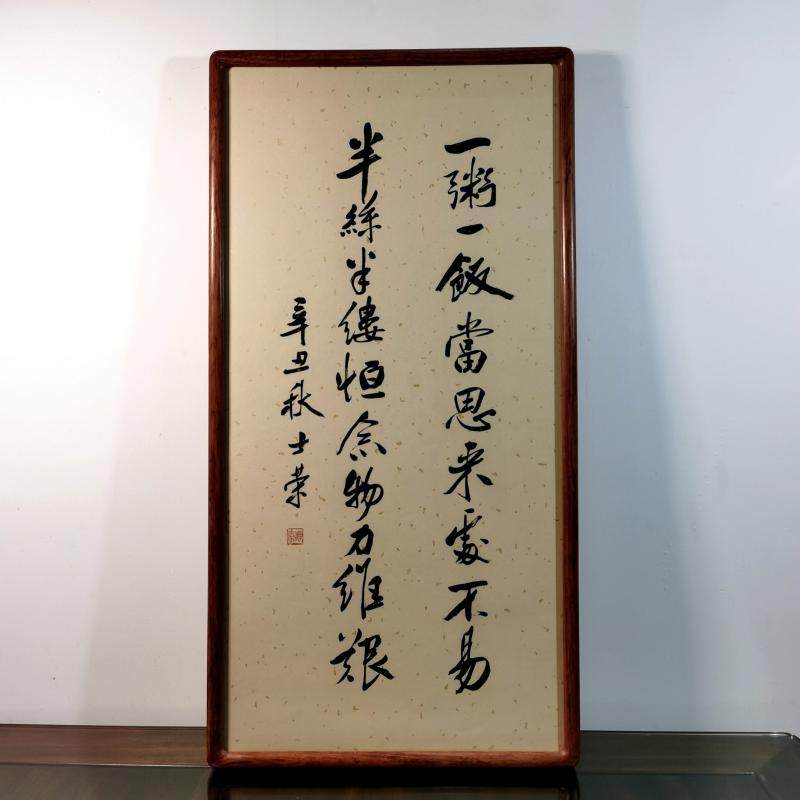 一粥一飯當思来處不易
半絲半縷恒念物力維艱
辛丑秋士荣